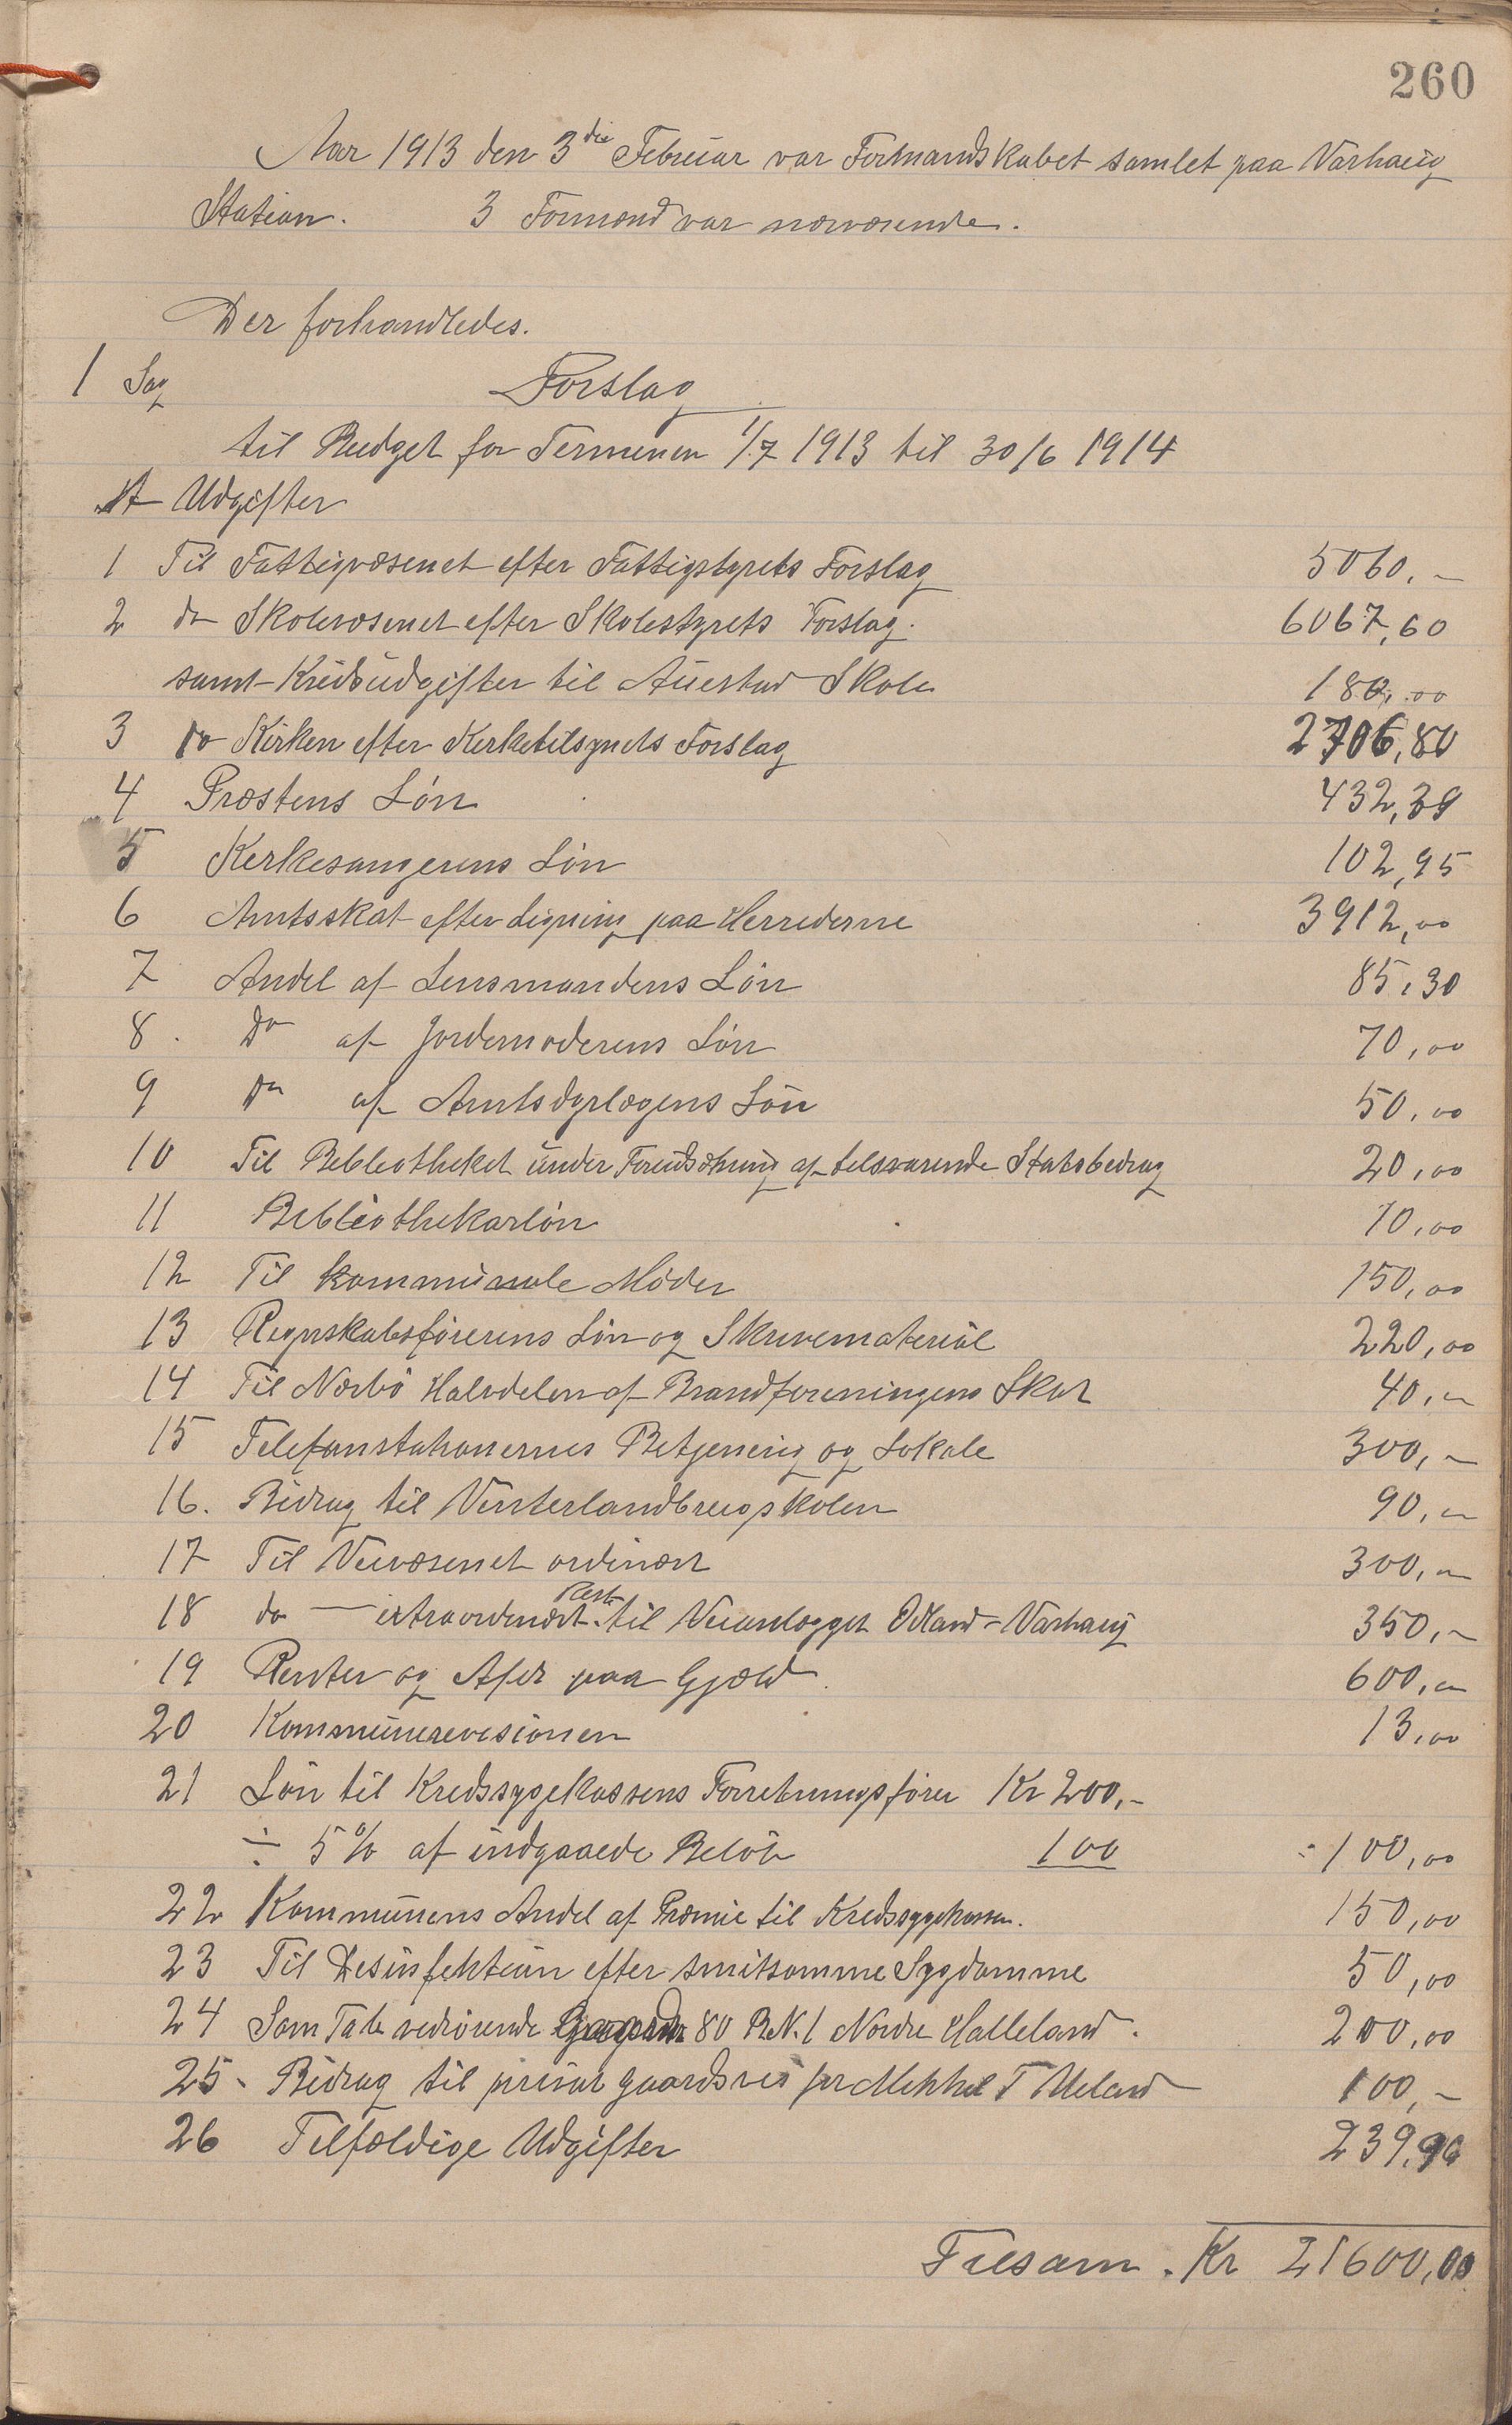 260
Aar 1913 den 3die Februar var Formandskabet samlet paa Varhaug
Station. 3 Formænd var nærværende.
Der forhandledes.
1 Sag Forslag
til Budget for Terminen 1/7 1913 til 30/6 1914
A Udgifter
1 Til Fattigvæsenet efter Fattigstyrets Forslag 5060,-
2 do Skolevæsenet efter Skolestyrets Forslag. 6067,60
samt Kredsudgifter til Auestad Skole 180,00
3 do Kirken efter Kirketilsynets Forslag 2706,80
4 Præstens Løn 432,39
5 Kirkesangerens Løn 102,95
6 Amtsskat efter Ligning paa Herrederne 3912,00
7 Andel af Lensmandens Løn 85,30
8. Do af Jordemoderens Løn 70,00
9 Do af Amtsdyrlægens Løn 50,00
10 Til Bibliotheket under Forudsætning af tilsvarende Statsbidrag 20,00
11 Bibliothekarløn 10,00
12 Til kommunale Møder 150,00
13 Regnskabsførerens Løn og Skrivematerial 220,00
14 Til Nærbø Halvdelen af Brandforeningens Skat 40,-
15 Telefonstationernes Betjening og Lokale 300,-
16. Bidrag til Vinterlandbrugsskolen 90,-
17 Til Veivæsenet ordinært 300,-
18 do — extraordinært Rest til Veianlægget Ødland - Varhaug 350,-
19 Renter og Afdr paa Gjæld 600,-
20 Kommunerevisionen 13,00
21 Løn til Kredssygekassens Forretningsfører Kr 200,-
÷ 5% af indgaaede Beløb 100 : 100,00
22 Kommunens Andel af Præmie til Kredssygekassen. 150,00
23 Til Desinfektion efter smitsomme Sygdomme 50,00
24 Som Tab vedrørende 80 B.N. 1 Nordre Halleland. 200,00
25. Bidrag til privat gaardsvei for Mikkel T Ueland 100,-
26 Tilfældige Udgifter 239,96
Tilsam. Kr 21600,00